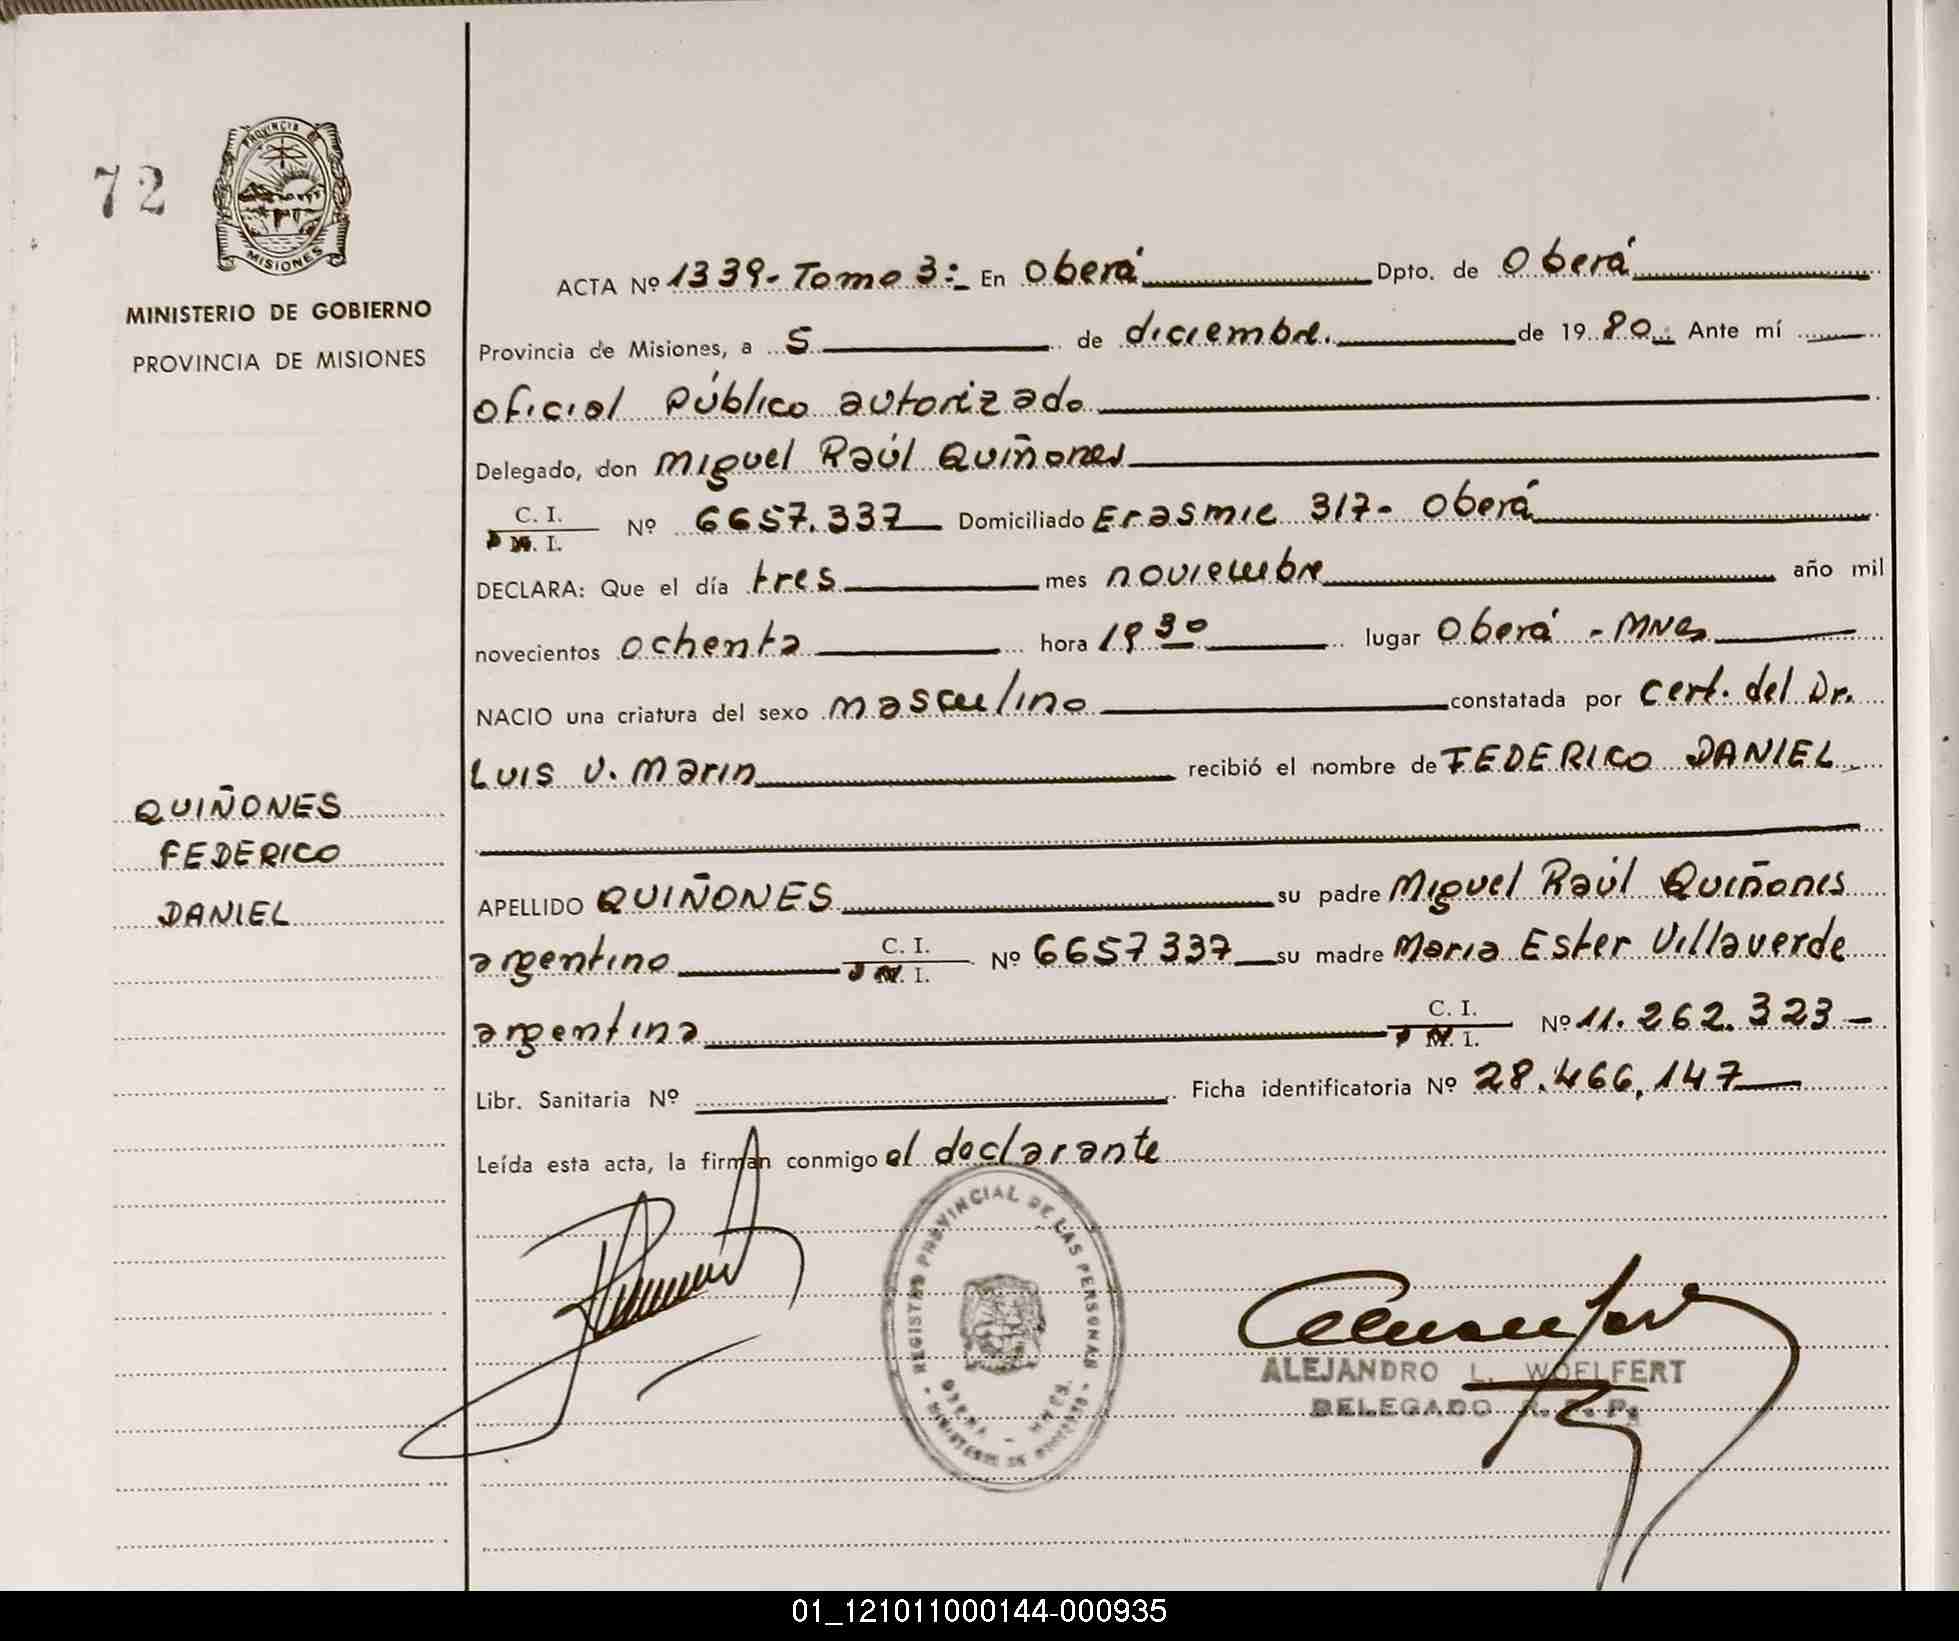 72
PROVINCIA DE
MISIONES
MINISTERIO DE GOBIERNO
PROVINCIA DE MISIONES
QUIÑONES
FEDERICO
DANIEL
ACTA Nº 1339-Tomo 3:- En Oberá Dpto. de Oberá
Provincia de Misiones, a 5 de diciembre. de 1980 Ante mí
Oficial Público autorizado
Delegado, don Miguel Raúl Quiñones
C. I.
D N. I. Nº 6657.337 Domiciliado Erasmie 317- Oberá
DECLARA: Que el día tres mes noviembre año mil
novecientos ochenta hora 19 30 lugar Oberá - Mnes
NACIO una criatura del sexo masculino constatada por cert. del Dr.
Luis V. Marin recibió el nombre de FEDERICO DANIEL
APELLIDO QUIÑONES su padre Miguel Raúl Quiñones
argentino C. I. D N. I. Nº 6657337 su madre Maria Ester Villaverde
argentina C. I. D N. I. Nº 11.262.323-
Libr. Sanitaria Nº Ficha identificatoria Nº 28.466,147
Leída esta acta, la firman conmigo el declarante
REGISTRO PROVINCIAL DE LAS PERSONAS
OBERA - MNES.
MINISTERIO DE GOBIERNO
ALEJANDRO L. WOELFERT
DELEGADO R. P. P.
01_121011000144-000935